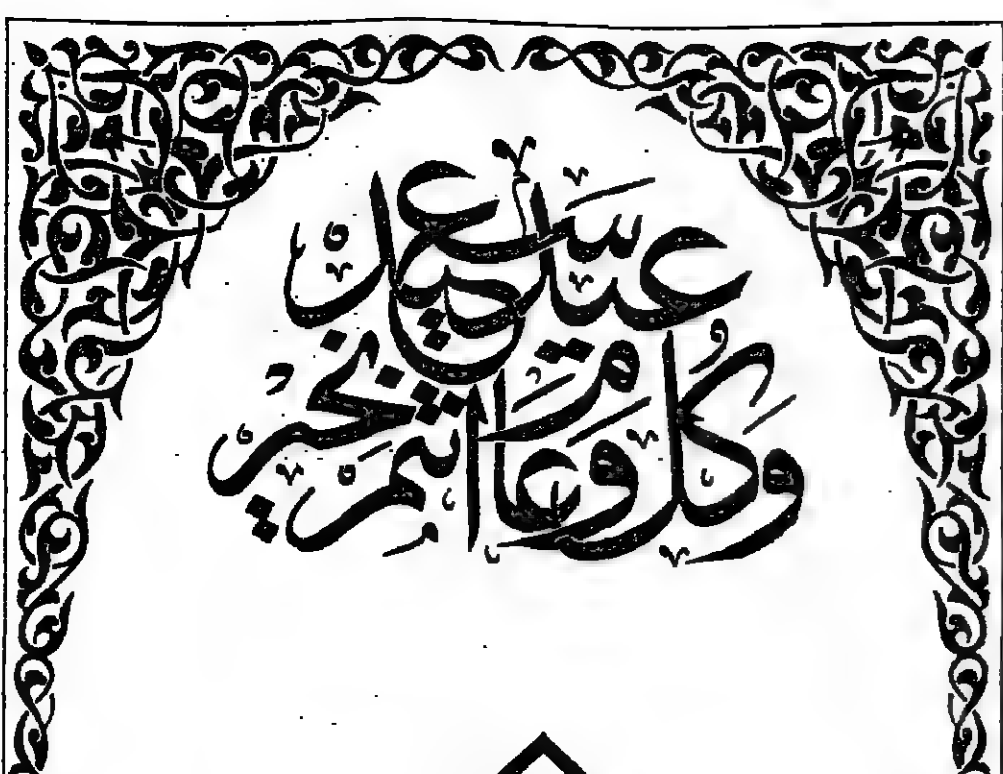 عيد سعيد
وكل عام وأنتم بخير